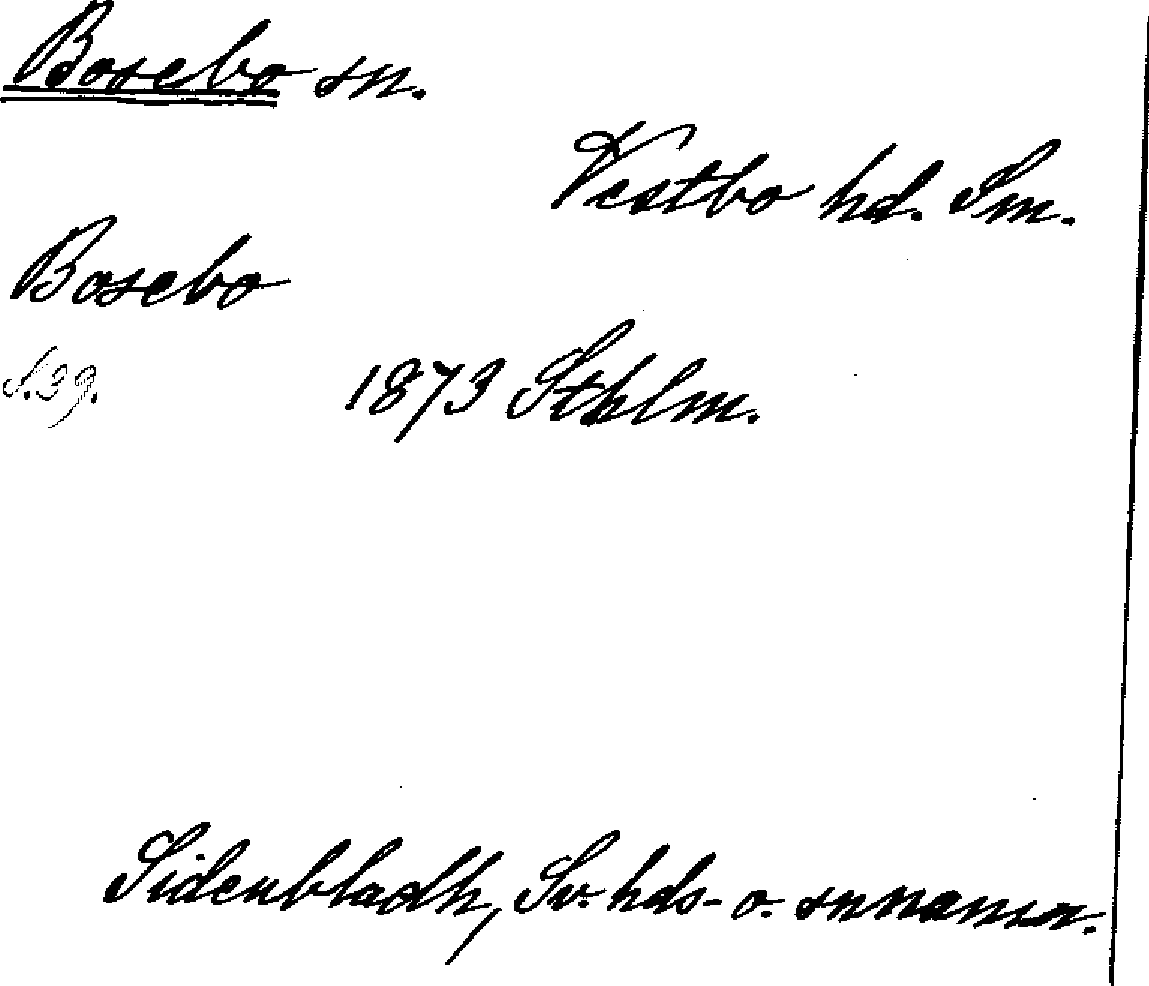 Bosebo sn.
Vestbo hd. Sm.
Bosebo
S. 39.
1873 Sthlm.
Sidenbladh, Sv. hds- o. snnamn.